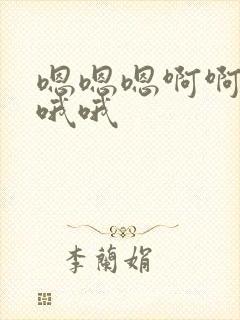 嗯嗯嗯啊啊
哦哦
李蘭娟